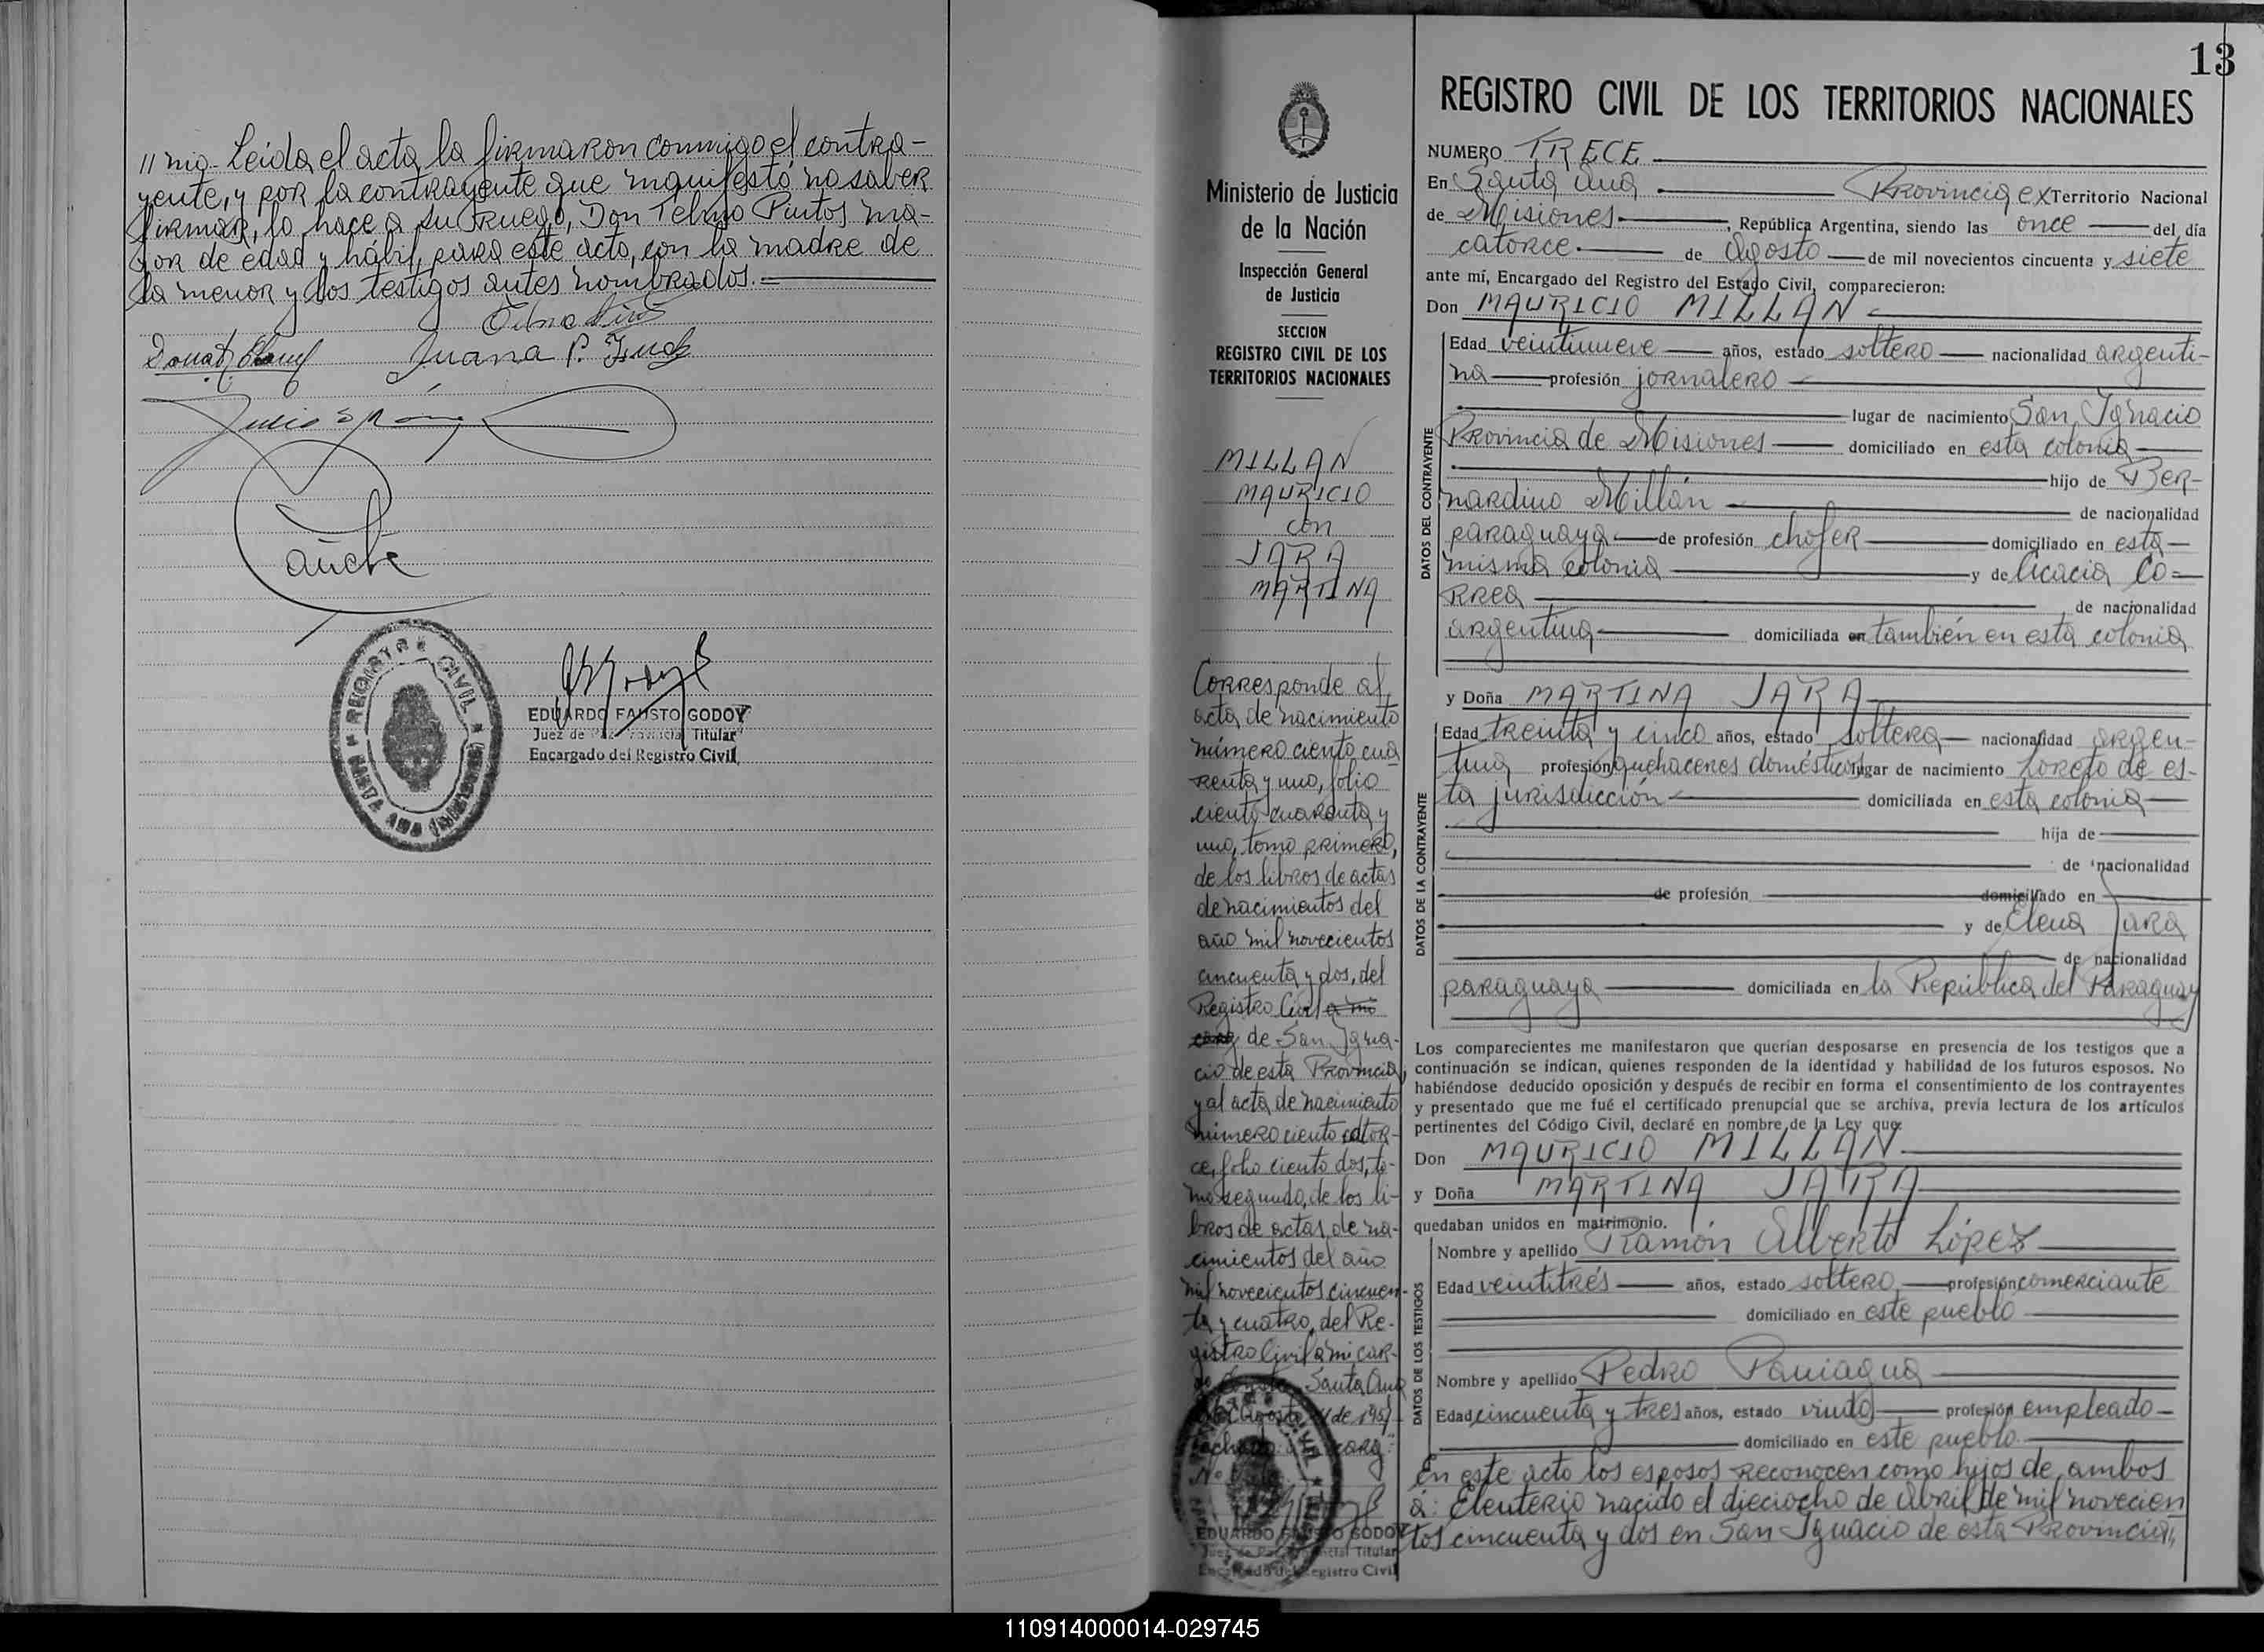 // nia. Leida el acta la firmaron conmigo el contra-
yente, y por la contrayente que manifestó no saber
firmar, lo hace a su ruego, Don Telmo Pintos ma-
yor de edad y hábil para este acto, con la madre de
la menor y los testigos antes nombrados.
Juana P.
REGISTRO CIVIL
SANTA ANA (MISIONES)
EDUARDO FAUSTO GODOY
Juez de Paz Provincial Titular
Encargado del Registro Civil
13
Ministerio de Justicia
de la Nación
Inspección General
de Justicia
SECCION
REGISTRO CIVIL DE LOS
TERRITORIOS NACIONALES
MILLAN
MAURICIO
con
JARA
MARTINA
Corresponde al
acta de nacimiento
número ciento cua
renta y uno, folio
ciento cuarenta y
uno, tomo primero,
de los libros de actas
de nacimientos del
año mil novecientos
cincuenta y dos, del
Registro Civil a mi
carg de San Igna-
cio de esta Provincia,
y al acta de nacimiento
número ciento cator-
ce, folio ciento dos, to-
mo segundo, de los li-
bros de actas de na-
cimientos del año
mil novecientos cincuen-
ta y cuatro, del Re-
gistro Civil a mi car-
Santa Ana
Agosto de 195
EDUARDO FAUSTO GODOY
Juez de Paz Provincial Titular
Encargado del Registro Civil
REGISTRO CIVIL DE LOS TERRITORIOS NACIONALES
NUMERO TRECE
En Santa Ana Provincia ex Territorio Nacional
de Misiones, República Argentina, siendo las once del día
catorce de Agosto de mil novecientos cincuenta y siete
ante mí, Encargado del Registro del Estado Civil, comparecieron:
Don MAURICIO MILLAN
DATOS DEL CONTRAYENTE
Edad veintinueve años, estado soltero nacionalidad argenti-
na profesión jornalero
lugar de nacimiento San Ignacio
Provincia de Misiones domiciliado en esta colonia
hijo de Ber-
nardino Millán de nacionalidad
paraguaya de profesión chofer domiciliado en esta
misma colonia y de Licacia Co=
rrea de nacionalidad
argentina domiciliada en también en esta colonia
y Doña MARTINA JARA
DATOS DE LA CONTRAYENTE
Edad treinta y cinco años, estado soltera nacionalidad argen-
tina profesión quehaceres domésticos lugar de nacimiento Loreto de es-
ta jurisdicción domiciliada en esta colonia
hija de
de nacionalidad
de profesión domiciliado en
y de Elena Jara
de nacionalidad
paraguaya domiciliada en la República del Paraguay
Los comparecientes me manifestaron que querían desposarse en presencia de los testigos que a
continuación se indican, quienes responden de la identidad y habilidad de los futuros esposos. No
habiéndose deducido oposición y después de recibir en forma el consentimiento de los contrayentes
y presentado que me fué el certificado prenupcial que se archiva, previa lectura de los artículos
pertinentes del Código Civil, declaré en nombre de la Ley que:
Don MAURICIO MILLAN
y Doña MARTINA JARA
quedaban unidos en matrimonio.
DATOS DE LOS TESTIGOS
Nombre y apellido Ramón Alberto López
Edad veintitrés años, estado soltero profesión comerciante
domiciliado en este pueblo
Nombre y apellido Pedro Paniagua
Edad cincuenta y tres años, estado viudo profesión empleado
domiciliado en este pueblo.
En este acto los esposos reconocen como hijos de ambos
a: Eleuterio nacido el dieciocho de Abril de mil novecien
tos cincuenta y dos en San Ignacio de esta Provincia,
110914000014-029745